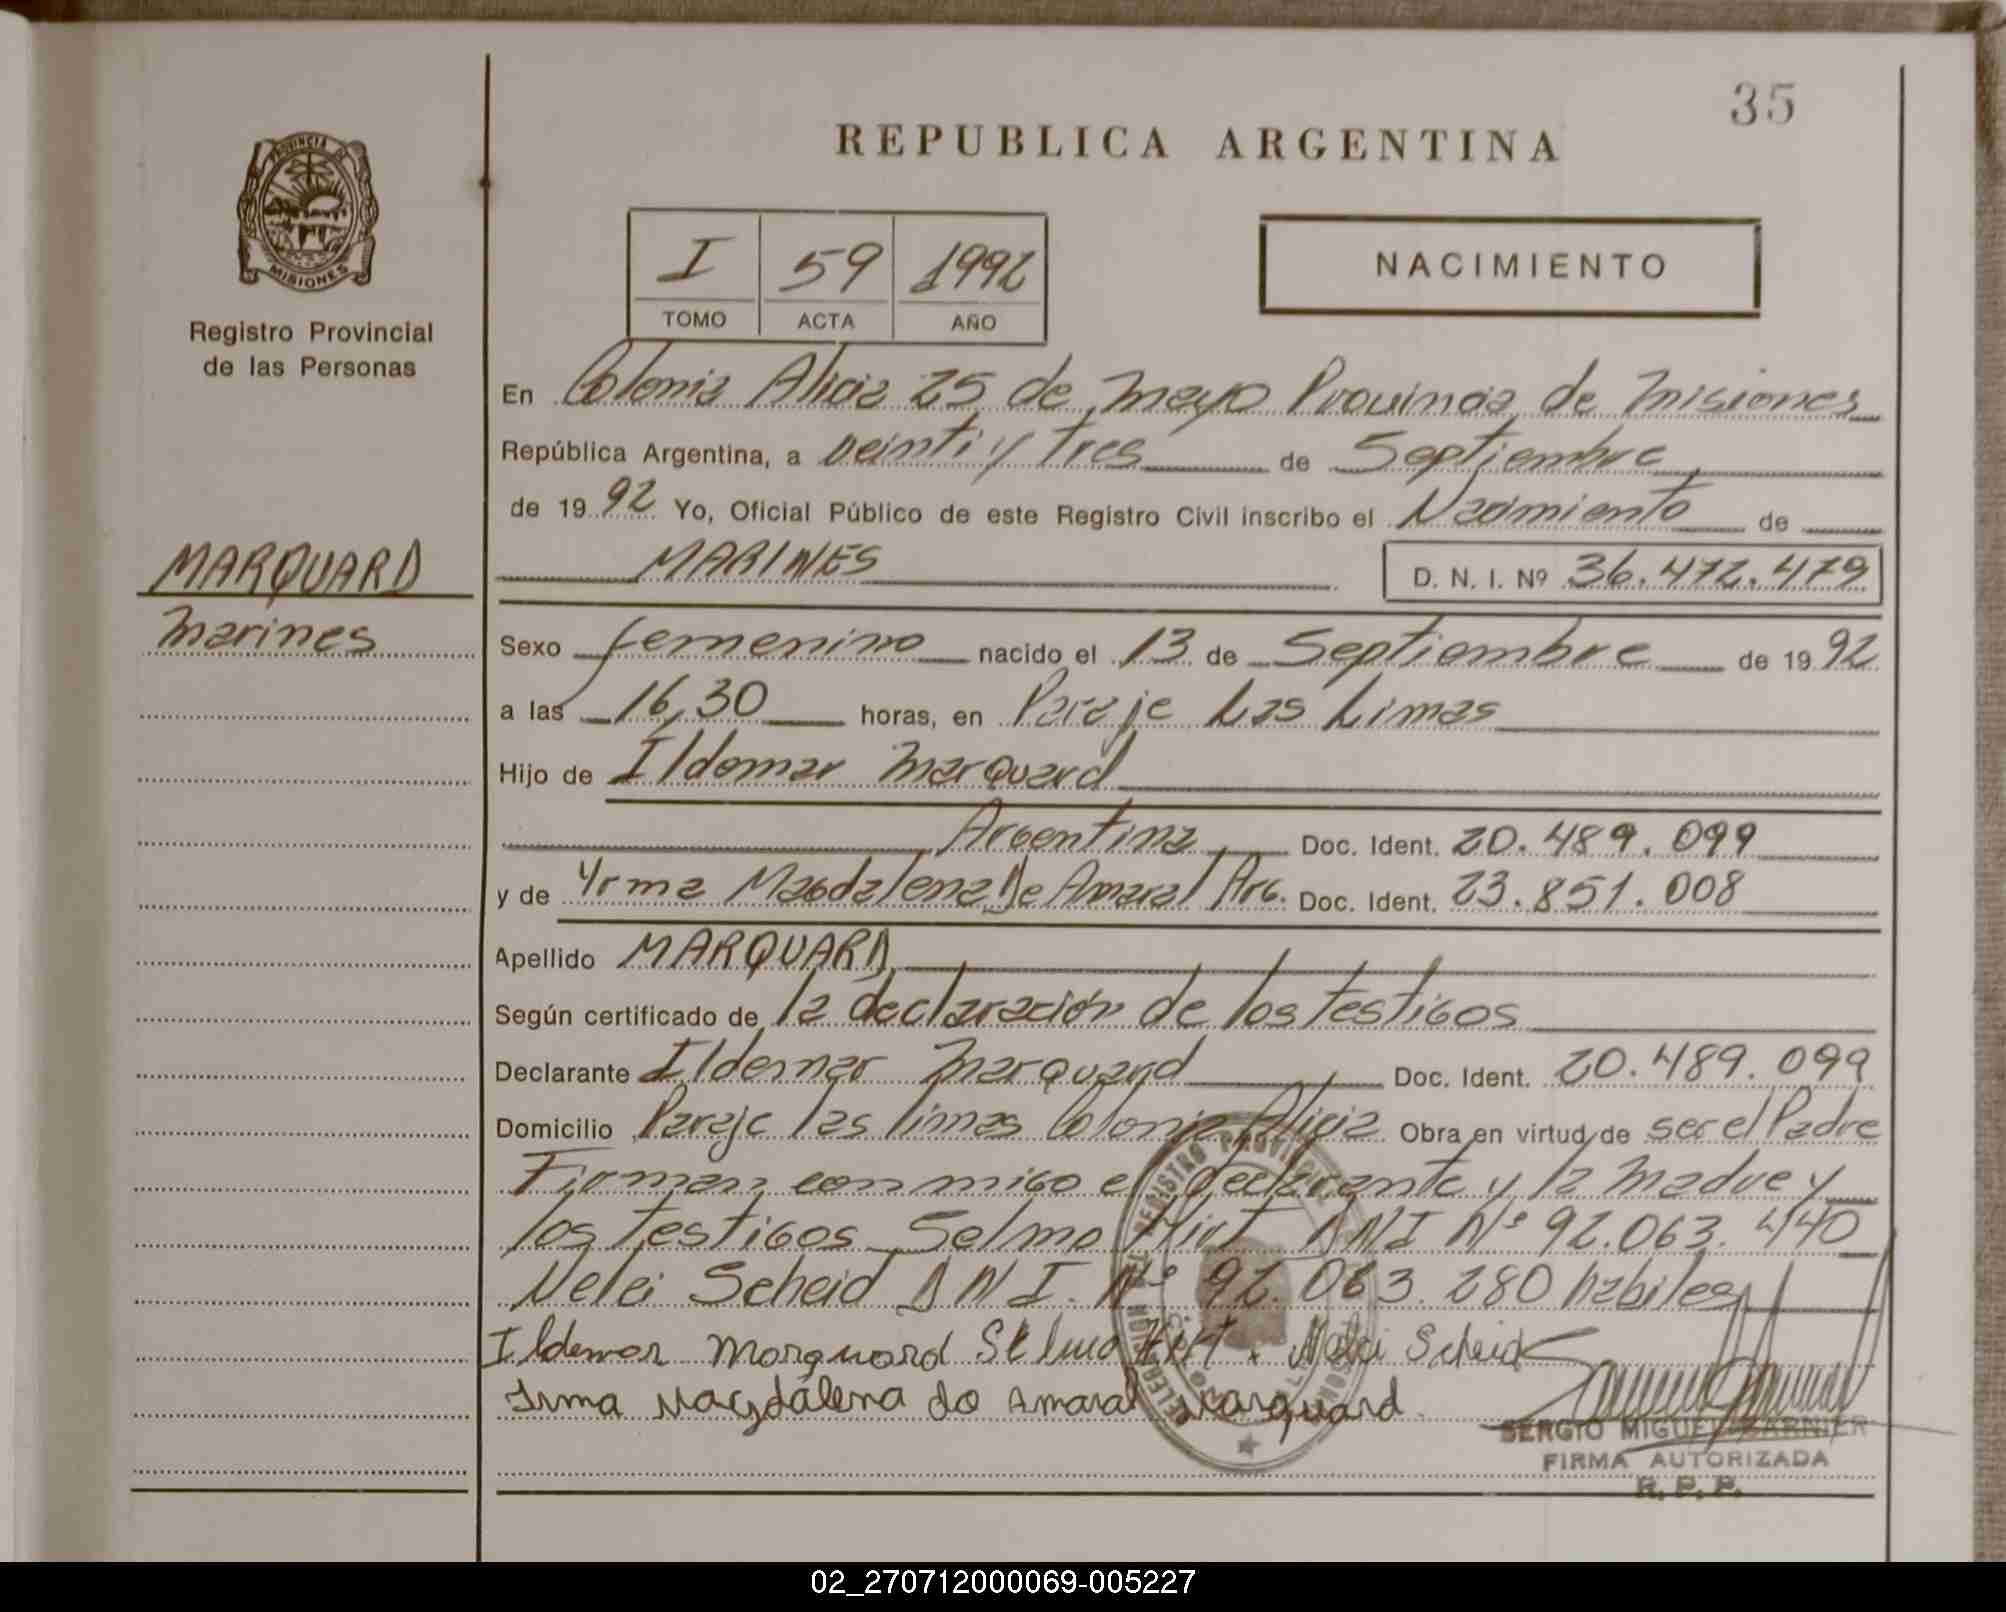 35
REPUBLICA ARGENTINA
PROVINCIA DE
MISIONES
Registro Provincial
de las Personas
I 59 1992
TOMO ACTA AÑO
NACIMIENTO
En Colonia Alicia 25 de Mayo Provincia de Misiones
República Argentina, a veinti y tres de Septiembre
de 1992 Yo, Oficial Público de este Registro Civil inscribo el Nacimiento de
MARINES D. N. I. Nº 36.472.479
MARQUARD
Marines
Sexo femenino nacido el 13 de Septiembre de 1992
a las 16,30 horas, en Paraje Las Limas
Hijo de Ildemar Marquard
Argentina Doc. Ident. 20.489.099
y de Yrma Magdalena De Amaral Arg. Doc. Ident. 23.851.008
Apellido MARQUARD
Según certificado de la declaración de los testigos
Declarante Ildemar Marquard Doc. Ident. 20.489.099
Domicilio Paraje las limas Colonia Alicia Obra en virtud de ser el Padre
Firman conmigo el declarante y la Madre y
los testigos Selmo Hirt DNI Nº 92.063.440
Nelei Scheid D N I. Nº 92.063.280 habiles
Ildemar Marquard Selmo Hirt Nelei Scheid
Irma Magdalena do Amaral Marquard
REGISTRO PROVINCIAL
SERGIO MIGUEL
FIRMA AUTORIZADA
R. P. P.
02_270712000069-005227